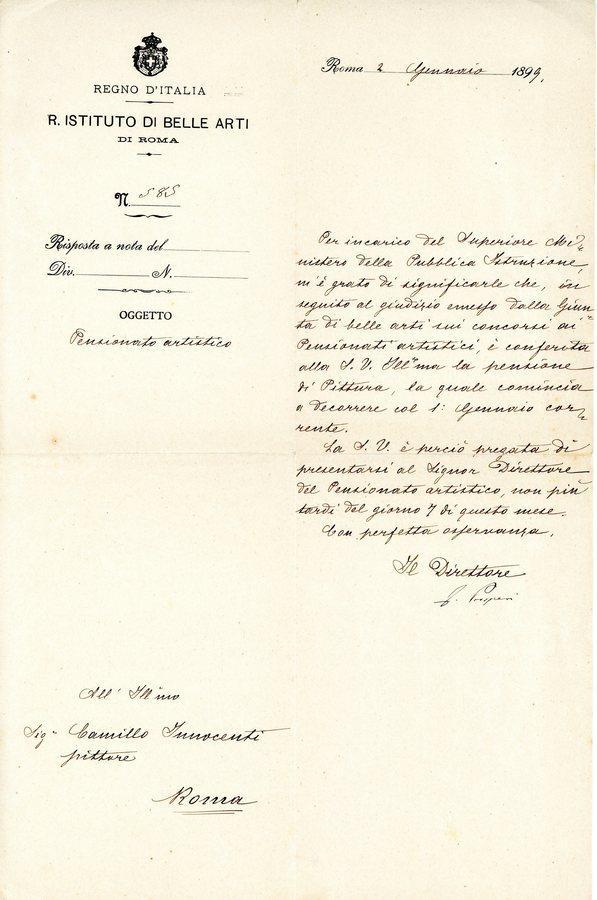 REGNO D'ITALIA
R. ISTITUTO DI BELLE ARTI
DI ROMA
N. 585
Risposta a nota del
Div. N.
OGGETTO
Pensionato artistico
Roma 2 Gennaio 1899,
Per incarico del Superiore Mi=
nistero della Pubblica Istruzione,
m'è grato di significarle che, in
seguito al giudizio emesso dalla Giun=
ta di belle arti sui concorsi ai
Pensionati artistici, è conferita
alla S. V. Ill͞ma la pensione
di Pittura, la quale comincia
a decorrere col 1º Gennaio cor=
rente.
La S. V. è perciò pregata di
presentarsi al Signor Direttore
del Pensionato artistico, non più
tardi del giorno 7 di questo mese.
Con perfetta osservanza.
Il Direttore
All' Ill͞mo
Sig. Camillo Innocenti
pittore
Roma